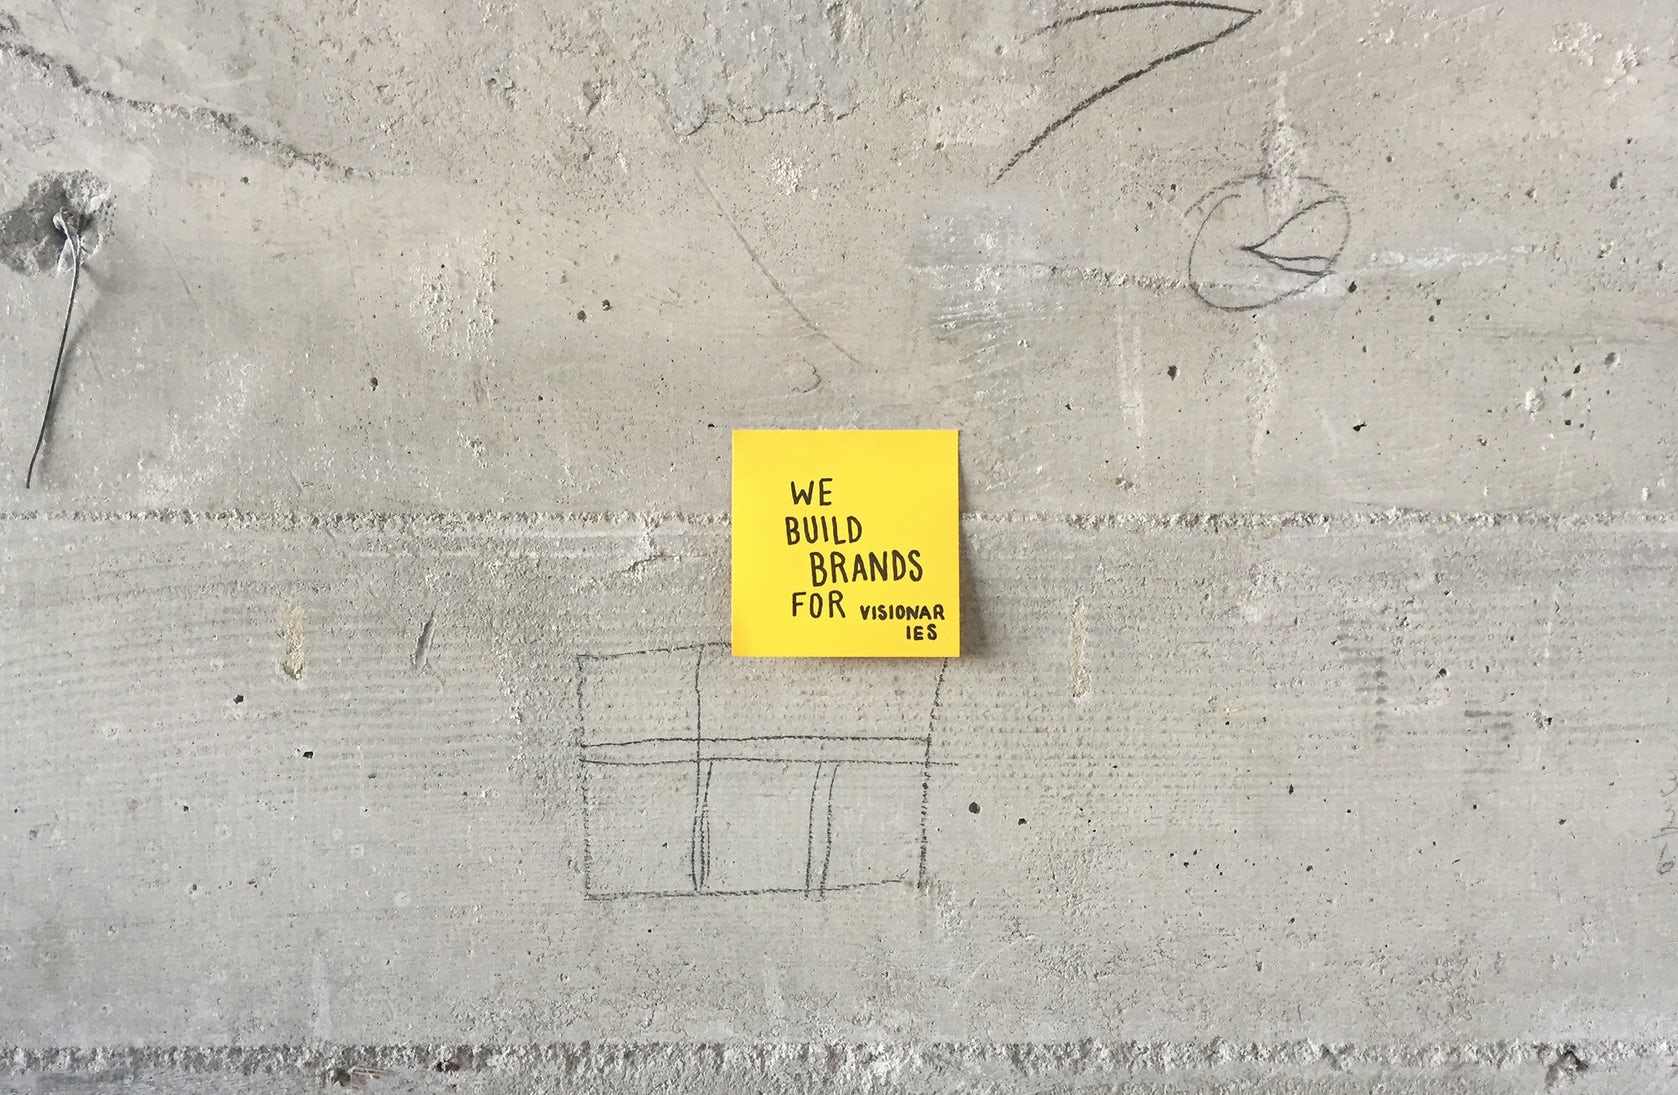 WE
BUILD
BRANDS
FOR VISIONAR
IES